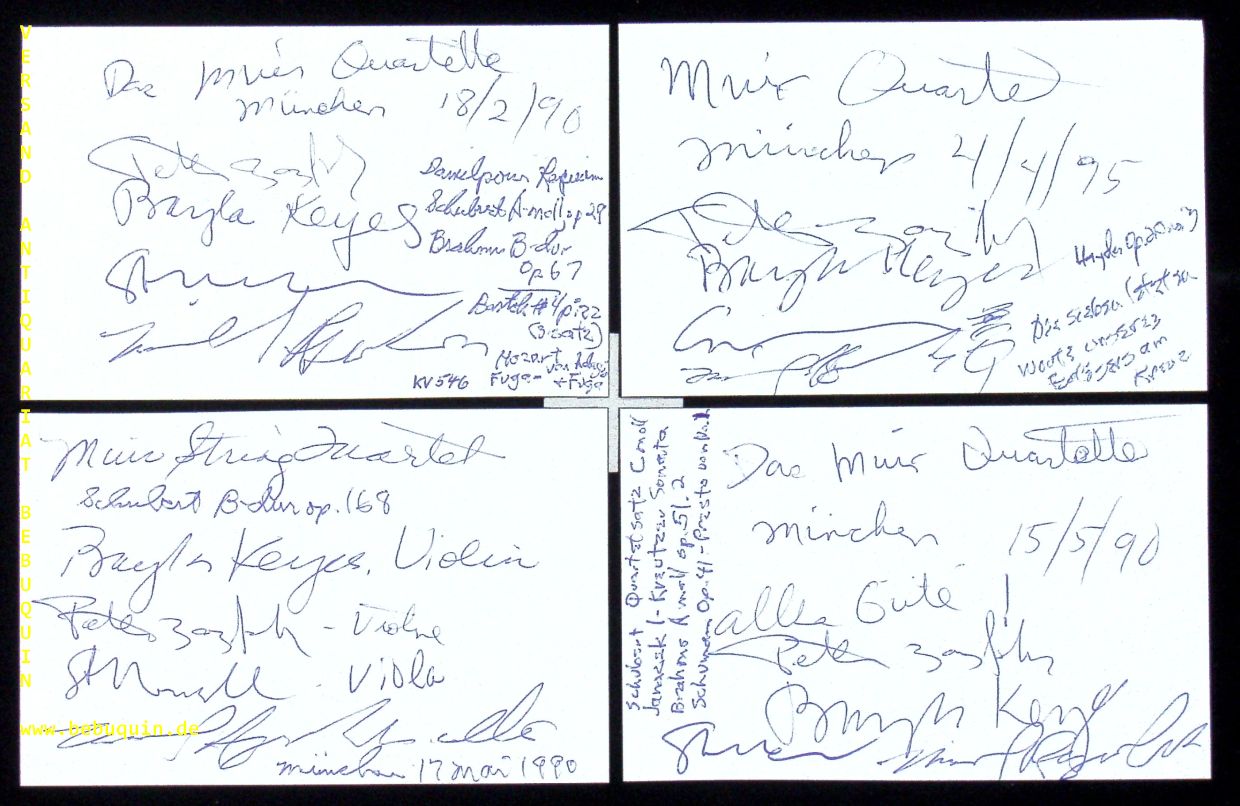 Das Muir Quartette
München 18/2/90
Peter Zazofsky
Bayla Keyes
Danielpour
Schubert A-moll, op 29
Brahms B-dur
Op 67
Bartok #4 pizz
(3 Satz)
Mozart
KV546 Fuga + Fuga
Muir Quartet
München 4/4/95
Peter Zazofsky
Bayla Keyes
Haydn Op 20
Worte unseres
Erlösers am
Kreuz
Muir String Quartet
Schubert B-dur op. 168
Bayla Keyes, Violin
Peter Zazofsky - Violine
- Viola
München 17 Mai 1990
Das Muir Quartette
München 15/5/90
alles Gute!
Peter Zazofsky
Bayla Keyes
Schubert Quartetsatz C moll
Janacek 1 - Kreutzer Sonata
Brahms A moll op. 51. 2
Schumann Op. 41 - Presto
VERSAND ANTIQUARIAT BEBUQUIN
www.bebuquin.de